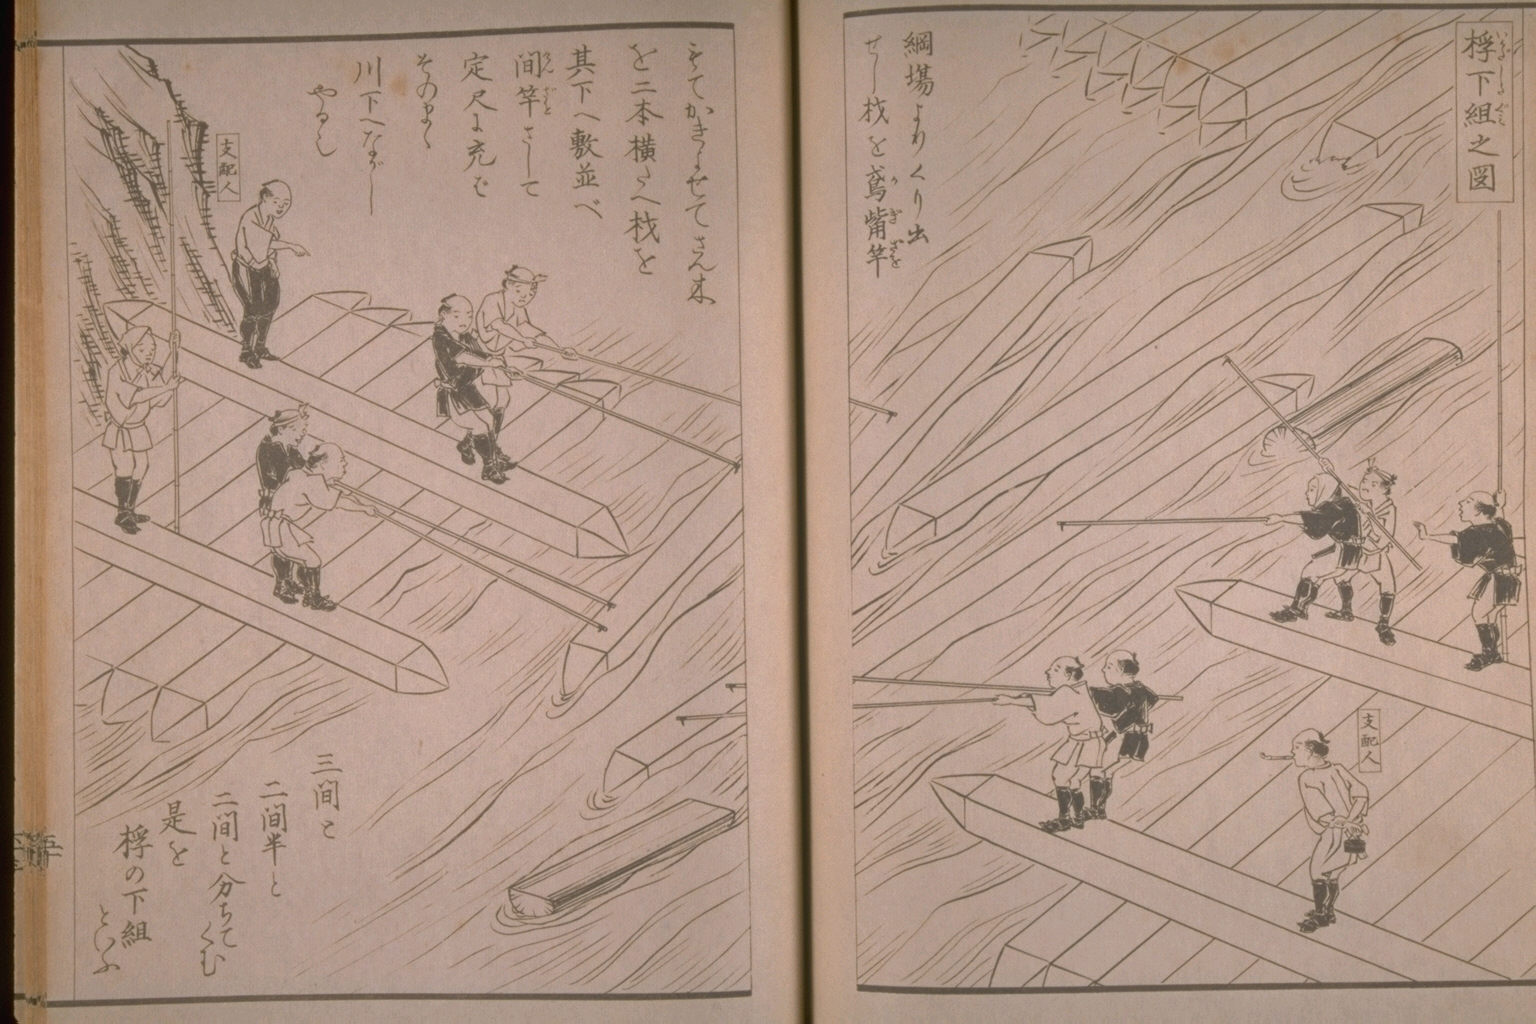 桴下組之図
いかだしたぐミ
綱場よりくり出
せし栰を鳶觜竿
支配人
もてかきよせてさん木
を二本横たへ栰を
其下へ敷並べ
間竿さして
けんざを
定尺に充を
そのまゝ
川下へながし
やるし
支配人
三間と
二間半と
二間と分ちてくむ
是を
桴の下組
といふ